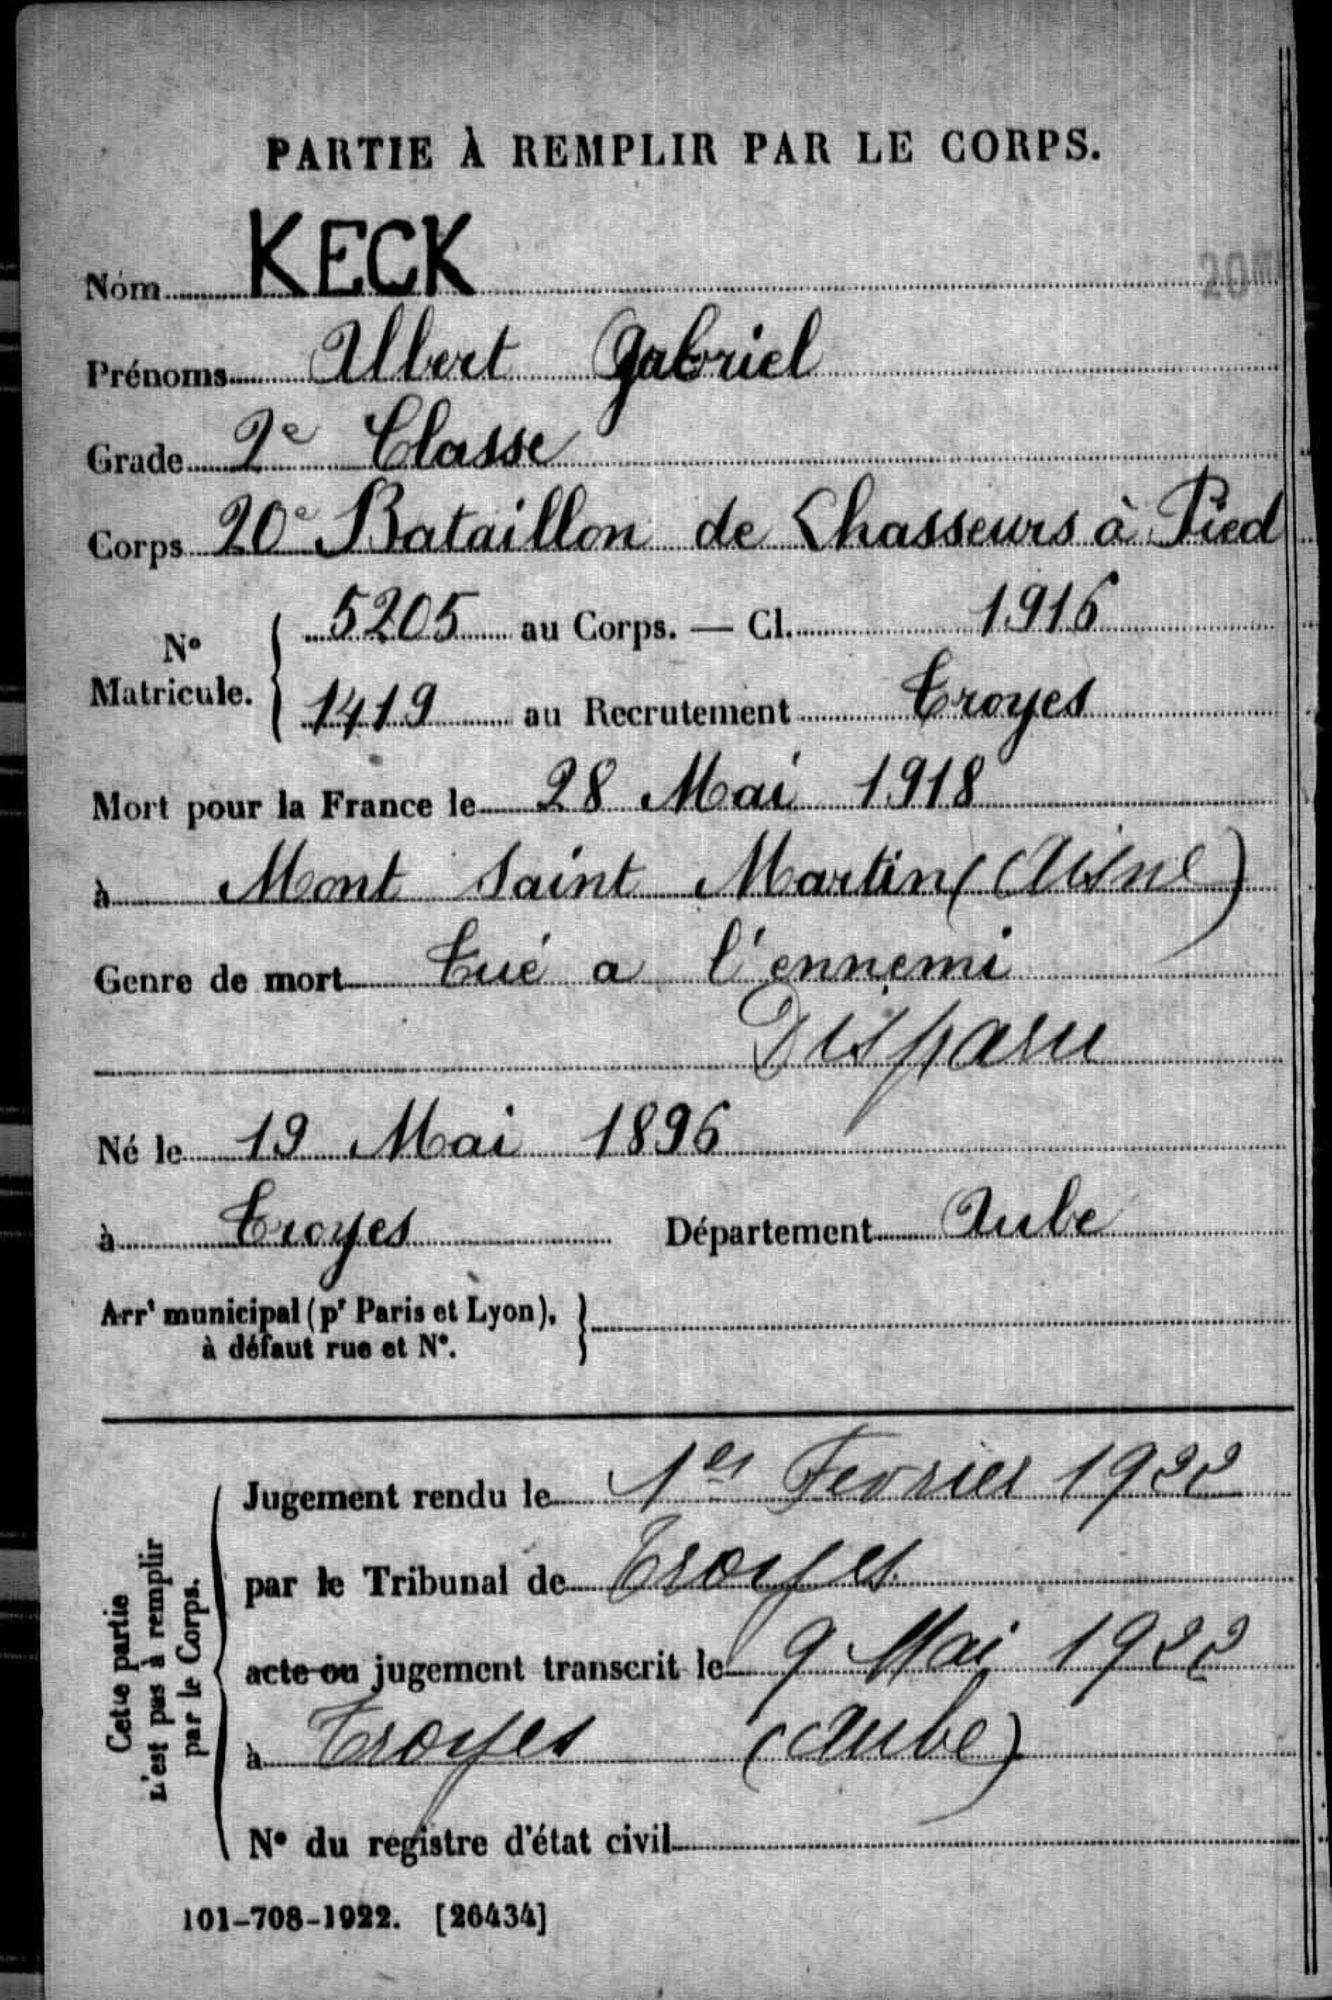 PARTIE À REMPLIR PAR LE CORPS.
Nom KECK
Prénoms Albert Gabriel
Grade 2e Classe
Corps 20e Bataillon de Chasseurs à Pied
No Matricule. { 5205 au Corps. — Cl. 1916
1419 au Recrutement Troyes
Mort pour la France le 28 Mai 1918
à Mont Saint Martin (Aisne)
Genre de mort Tué a l'ennemi
Disparu
Né le 19 Mai 1896
à Troyes Département Aube
Arrt municipal (pr Paris et Lyon), }
à défaut rue et N°.
Cette partie
n'est pas à remplir
par le Corps.
Jugement rendu le 1er Fevrier 1922
par le Tribunal de Troyes
acte ou jugement transcrit le 9 Mai 1922
à Troyes (Aube)
N° du registre d'état civil
101-708-1922. [26434]